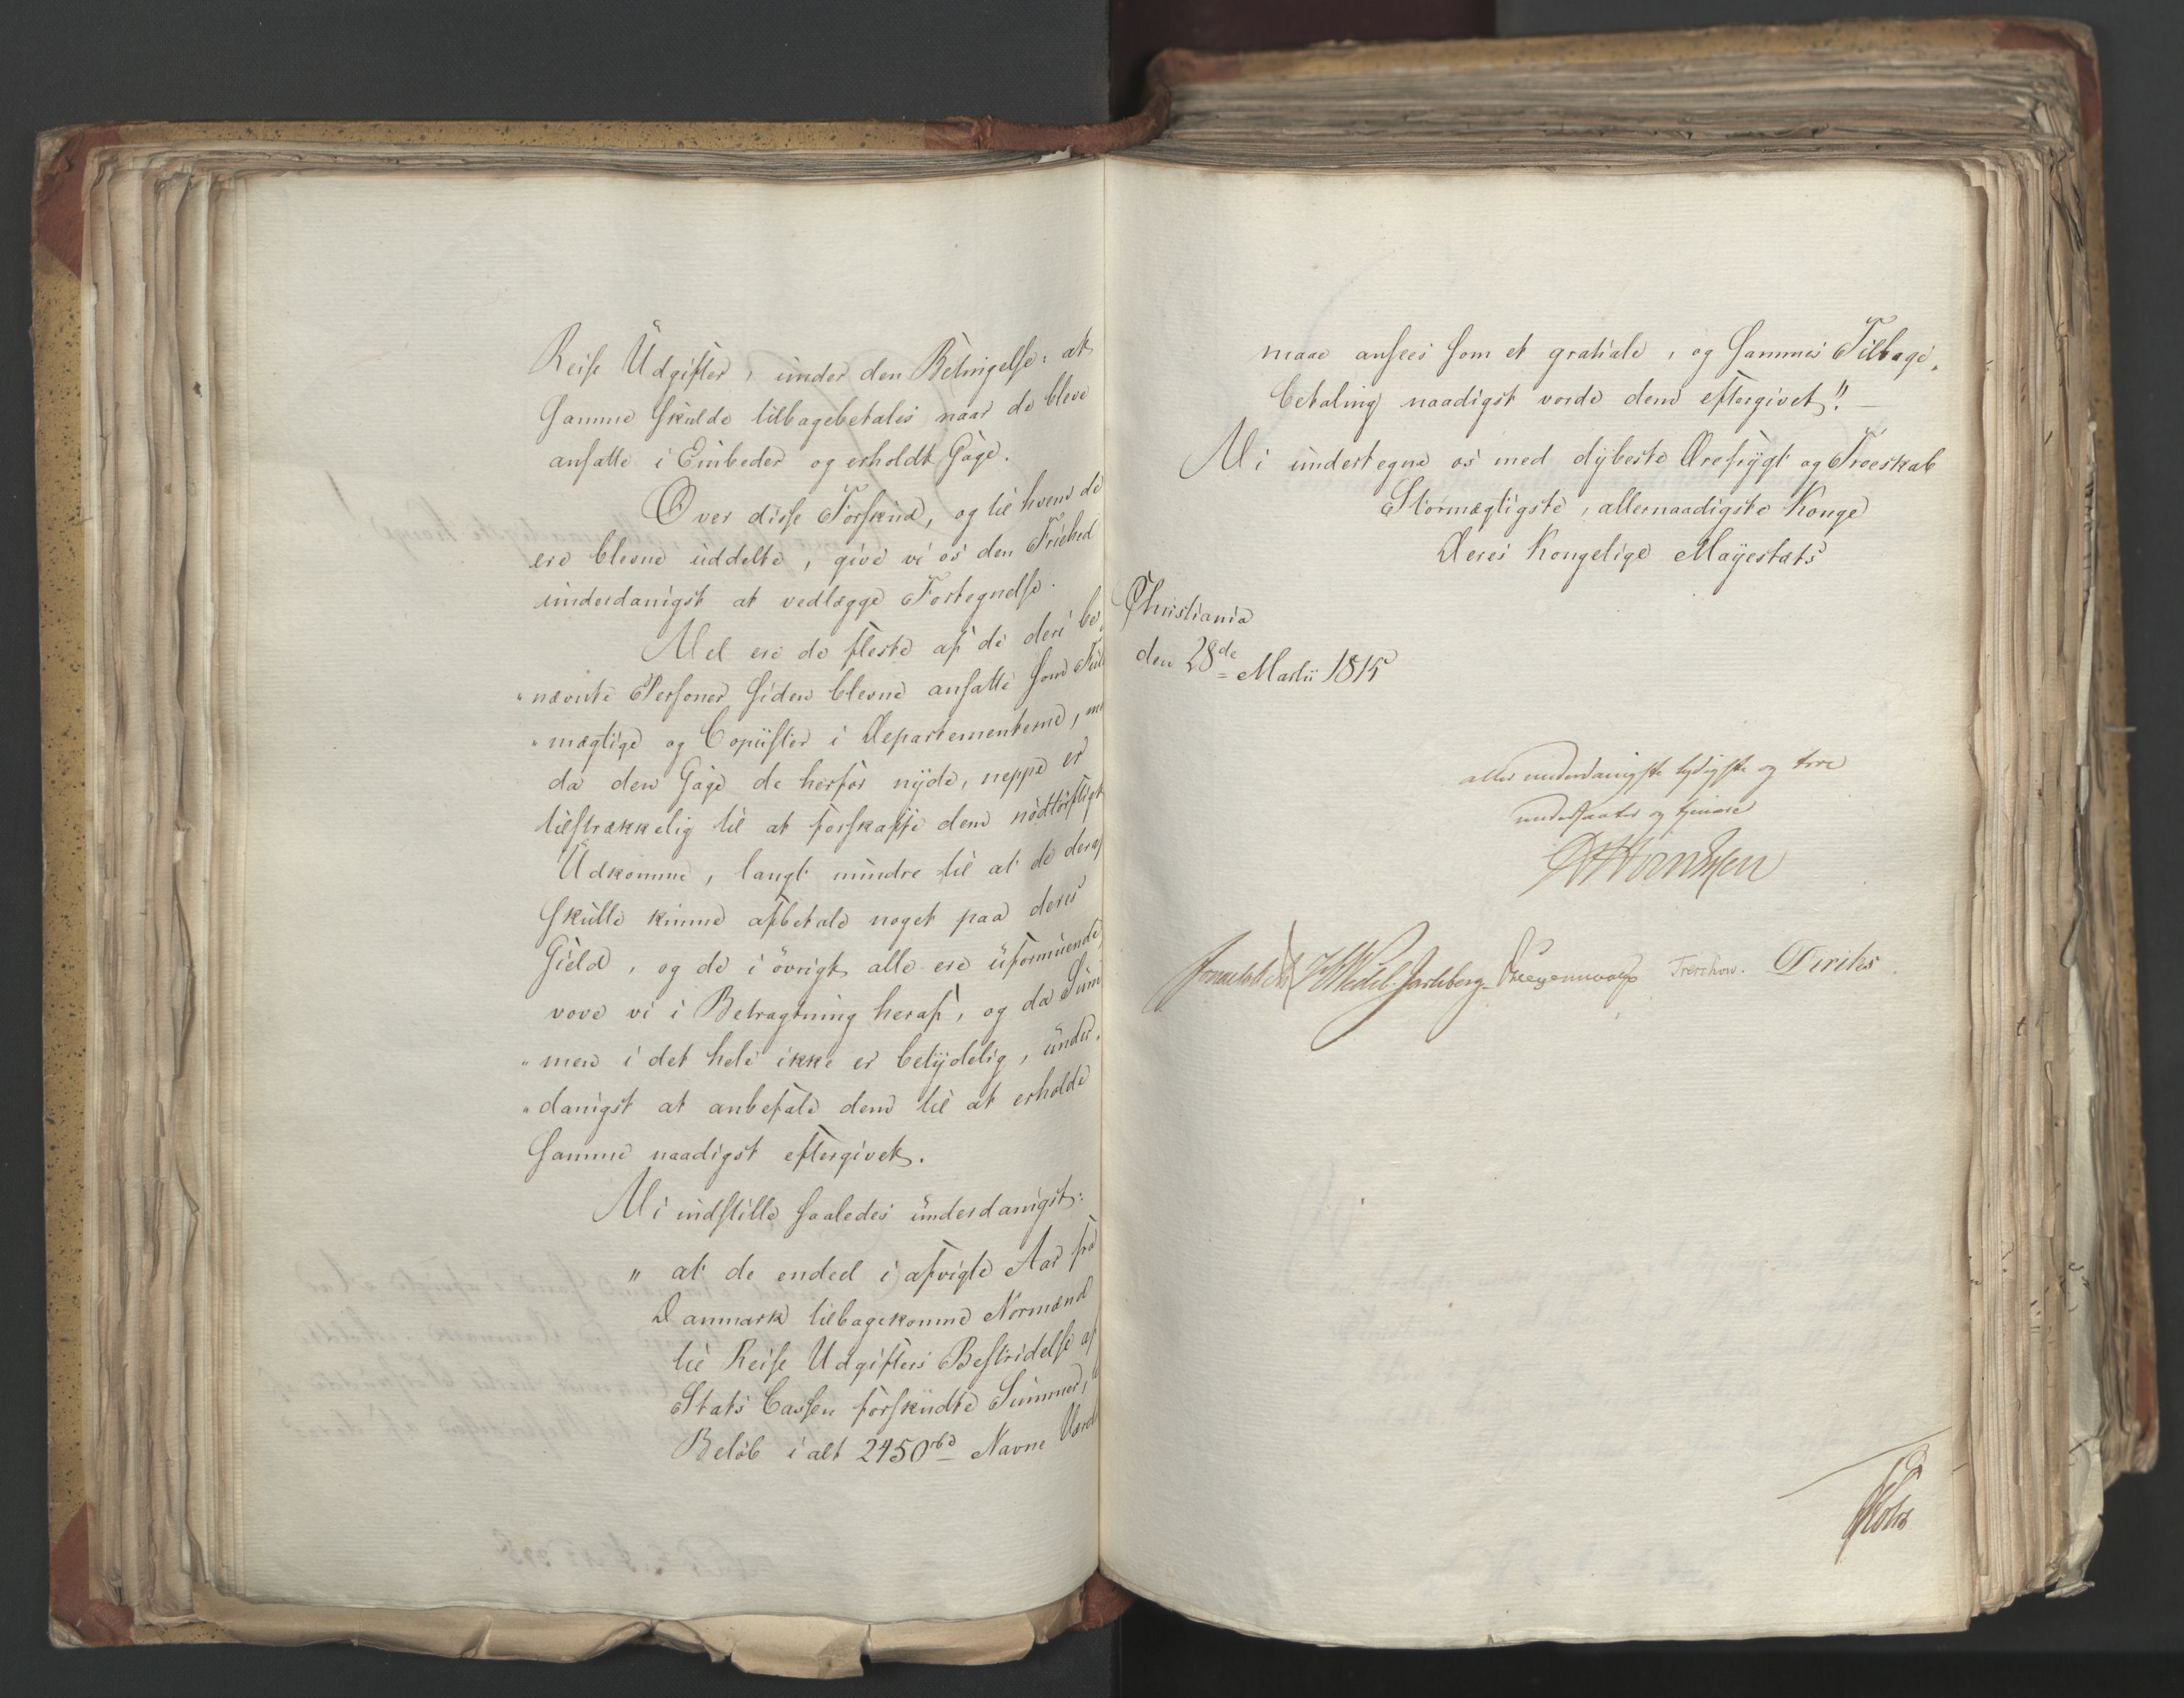 Reise Udgifter, under den Betingelse: at
samme skulde tilbagebetales naar de bleve
ansatte i Embeder og erholdt Gage.
Over disse Forskud, og til hvem de
ere blevne uddelte, give vi os den Friehed
underdanigst at vedlægge Fortegnelse.
Vel ere de fleste af de deri be,
"nævnte Personer siden blevne ansatte som Ful
"mægtige og Copiister i Departementerne, m
da den Gage de herfor nyde, neppe er
tilstrækkelig til at forskaffe dem nødtørftigt
Udkomme, langt mindre til at de deraf
skulle kunne afbetale noget paa deres
Gield, og de i øvrigt alle ere uformuende,
vove vi i Betragtning heraf, og da Sum
"men i det hele ikke er betydelig, under,
"danigst at anbefale dem til at erholde
samme naadigst eftergivet.
Vi indstille saaledes underdanigst:
" at de endeel i afvigte Aar fra
Danmark tilbagekomne Normænd
til Reise Udgifters Bestridelse af
Stats Cassen forskudte Summer,
Beløb i alt 2450 rbd Navne Værdi
maae ansees som et gratiale, og sammes Tilbage,
betaling naadigst vorde dem eftergivet". —
Vi undertegne os med dybeste Ærefrygt og Troeskab
Stormægtigste, allernaadigste Konge
Deres Kongelige Mayestæts
Christiania
den 28de Martii 1815
allerunderdanigste lydigste og troe
undersaatter og tjenere
Sommerfeldt Wedel Jarlsberg Treschow. Diriks
Holst